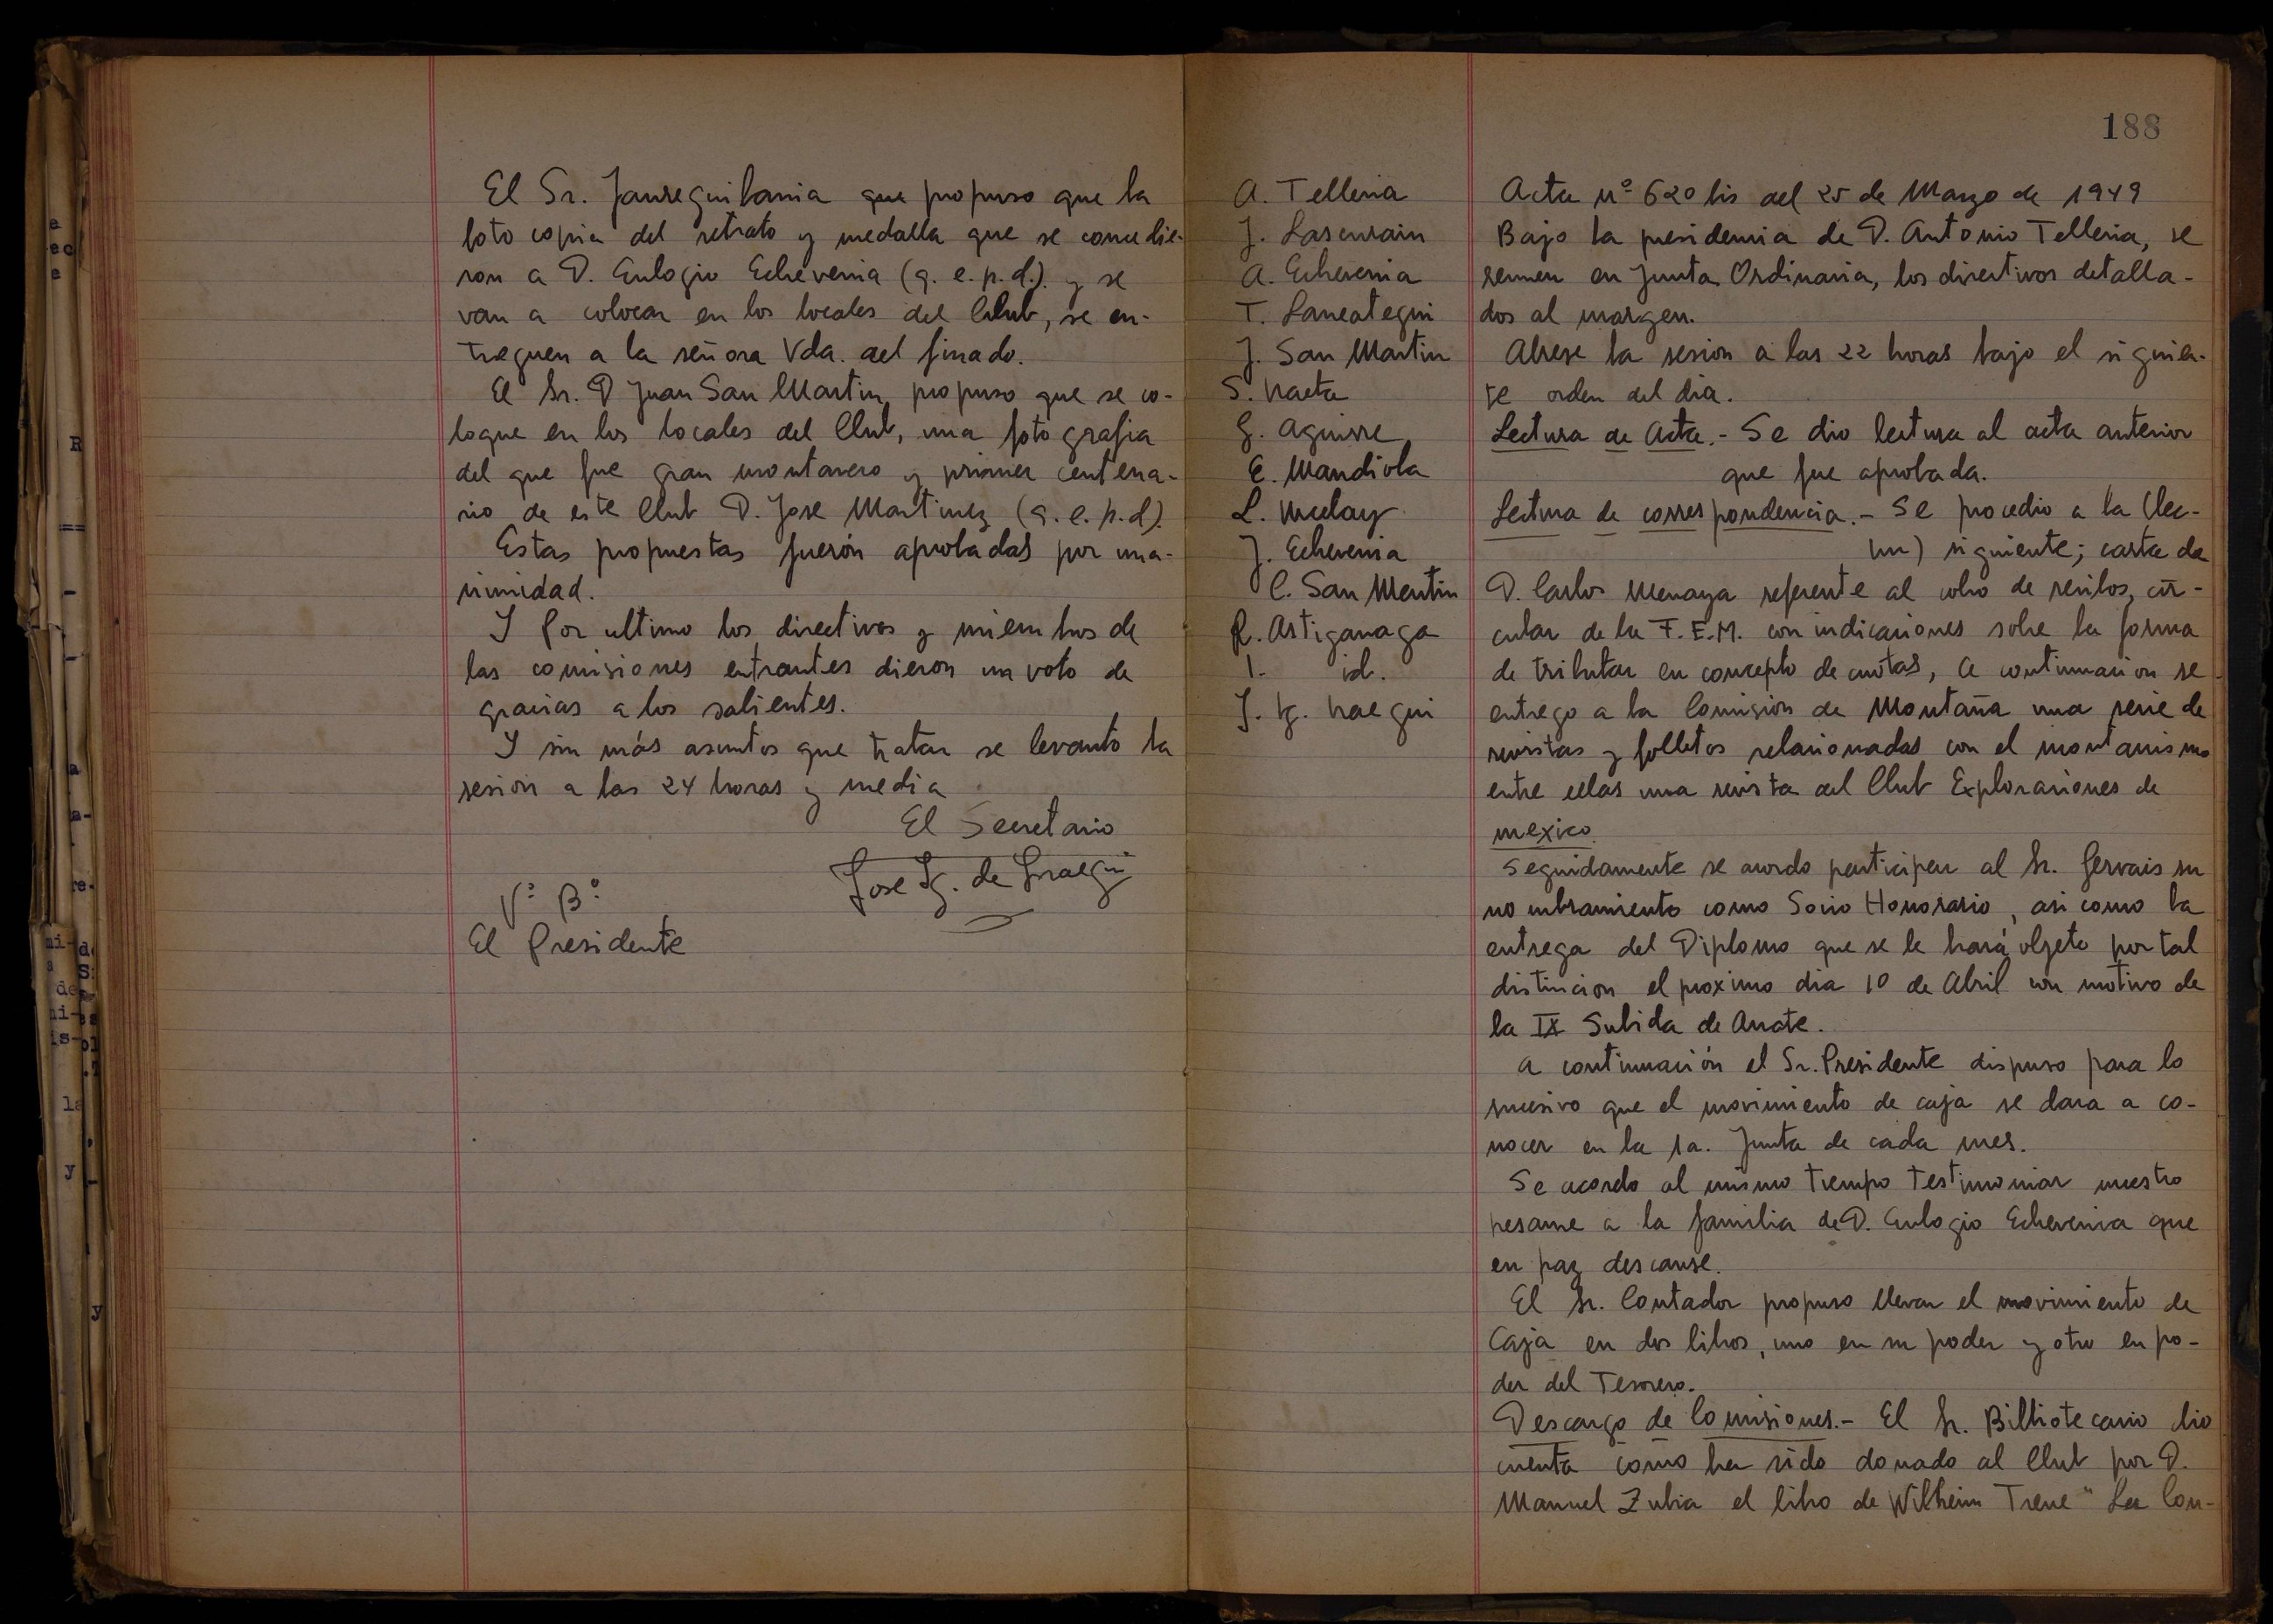 El Sr. Jaureguibarria que propuso que la
foto copia del retrato y medalla que se concedie-
ron a D. Eulogio Echeverria (q. e. p. d.). y se
van a colocar en los locales del Club, se en-
treguen a la señora Vda. del finado.
El Sr. D Juan San Martin, propuso que se co-
loque en los locales del Club, una foto grafia
del que fue gran montanero y primer centena-
rio de este Club D. Jose Martinez (q. e. p. d).
Estas propuestas fuerón aprobadas por una-
nimidad.
Y por ultimo los directivos y miembros de
las comisiones entrantes dieron un voto de
gracias a los salientes.
Y sin más asuntos que tratar se levanto la
sesión a las 24 horas y media
El Secretario
Jose Ig. de Iraegui
Vº Bº
El Presidente
188
A. Telleria
J. Lascurain
A. Echeverria
T. Larreategui
J. San Martin
S.
G. Aguirre
E. Mandiola
L.
J. Echeverria
C. San Martin
R. Astigarraga
I. id.
J. Ig. Iraegui
Acta Nº 620 bis del 25 de Marzo de 1949
Bajo la presidencia de D. Antonio Telleria, se
reunen en Junta Ordinaria, los directivos detalla-
dos al margen.
Abrese la sesion a las 22 horas bajo el siguien-
te orden del dia.
Lectura de Acta.- Se dio lectura al acta anterior
que fue aprobada.
Lectura de correspondencia.- Se procedio a la (lec-
tura) siguiente; carta de
D. Carlos Menaya referente al cobro de recibos, cir-
cular de la F.E.M. con indicaciones sobre la forma
de tributar en concepto de cuotas, a continuacion se
entrego a la Comision de Montaña una serie de
revistas y folletos relacionadas con el montanismo
entre ellas una revista del Club Exploraciones de
mexico
Seguidamente se acordo participar al Sr. Gervais su
nombramiento como Socio Honorario, asi como la
entrega del Diploma que se le hará objeto por tal
distincion el proximo dia 10 de Abril con motivo de
la IX Subida de Arrate.
A continuación el Sr. Presidente dispuso para lo
sucesivo que el movimiento de caja se dara a co-
nocer en la 1a. Junta de cada mes.
Se acordo al mismo tiempo testimoniar nuestro
pesame a la familia de D. Eulogio Echeverria que
en paz descanse.
El Sr. Contador propuso llevar el movimiento de
Caja en dos libros, uno en su poder y otro en po-
der del Tesorero.
Descargo de Comisiones.- El Sr. Bibliotecario dio
cuenta como ha sido donado al Club por D.
Manuel Zubia el libro de Wilheim Treue "La Con-